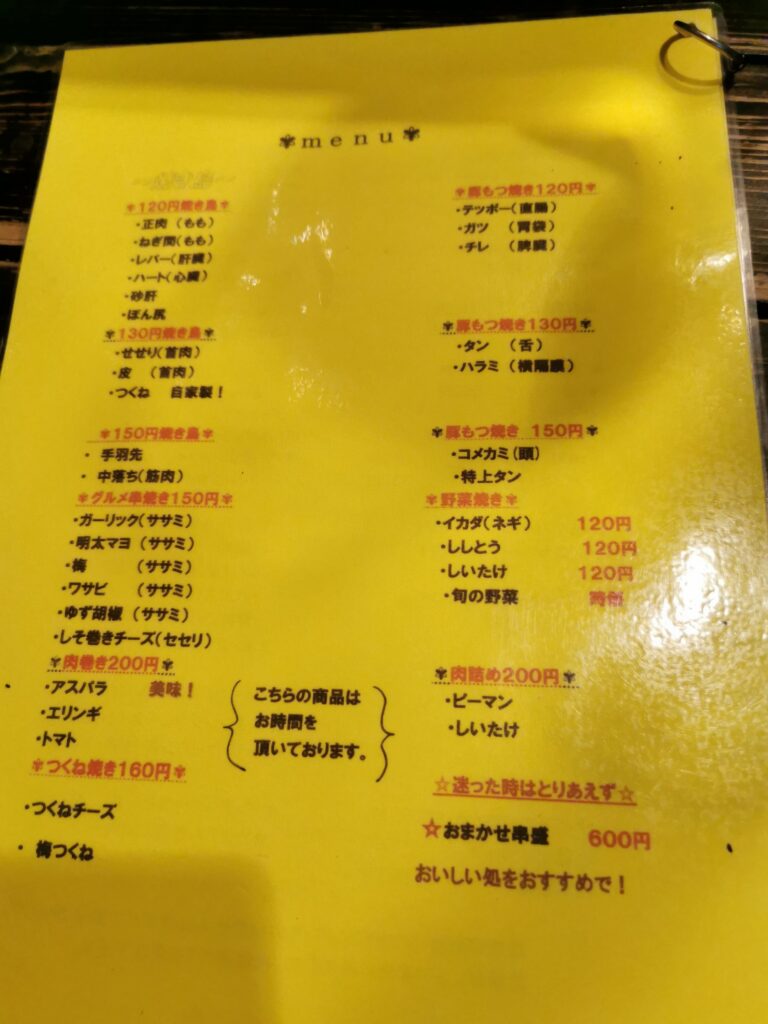 ✾menu✾
✾120円焼き鳥✾
・正肉 (もも)
・ねぎ間(もも)
・レバー(肝臓)
・ハート(心臓)
・砂肝
・ぼん尻
✾130円焼き鳥✾
・せせり(首肉)
・皮 (首肉)
・つくね 自家製！
✾150円焼き鳥✾
・手羽先
・中落ち(筋肉)
✾グルメ串焼き150円✾
・ガーリック(ササミ)
・明太マヨ (ササミ)
・梅 (ササミ)
・ワサビ (ササミ)
・ゆず胡椒 (ササミ)
・しそ巻きチーズ(セセリ)
✾肉巻き200円✾
・アスパラ 美味！
・エリンギ
・トマト
こちらの商品は
お時間を
頂いております。
✾つくね焼き160円✾
・つくねチーズ
・梅つくね
✾豚もつ焼き120円✾
・テッポー(直腸)
・ガツ (胃袋)
・チレ (脾臓)
✾豚もつ焼き130円✾
・タン (舌)
・ハラミ (横隔膜)
✾豚もつ焼き 150円✾
・コメカミ(頭)
・特上タン
✾野菜焼き✾
・イカダ(ネギ) 120円
・ししとう 120円
・しいたけ 120円
・旬の野菜 時価
✾肉詰め200円✾
・ピーマン
・しいたけ
☆迷った時はとりあえず☆
☆おまかせ串盛 600円
おいしい処をおすすめで！